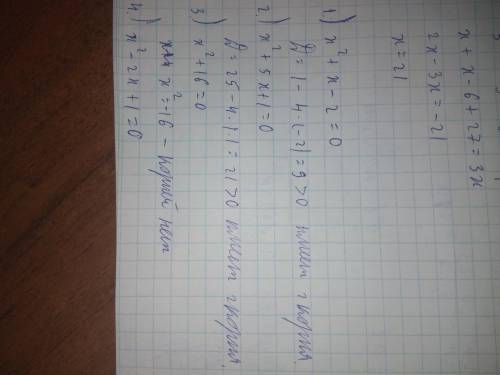 x + x - 6 + 27 = 3x
2x - 3x = -21
x = 21
1.) x² + x - 2 = 0
D = 1 - 4·(-2) = 9 > 0 имеет 2 корня.
2.) x² + 5x + 1 = 0
D = 25 - 4·1·1 = 21 > 0 имеет 2 корня.
3.) x² + 16 = 0
x² = -16 - корней нет
4.) x² - 2x + 1 = 0